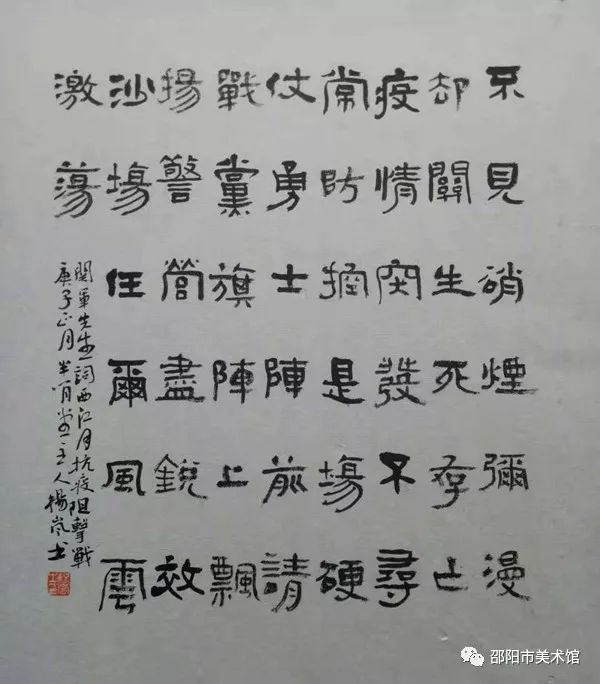 不見硝煙彌漫
却關生死存亡
疫情突發不尋
常防控是場硬
仗勇士陣前請
戰黨旗陣上飄
揚警營盡銳效
沙場任爾風雲
激蕩
関軍先生詞西江月抗疫阻擊戰
庚子正月半堂主人楊嵐书
邵阳市美术馆